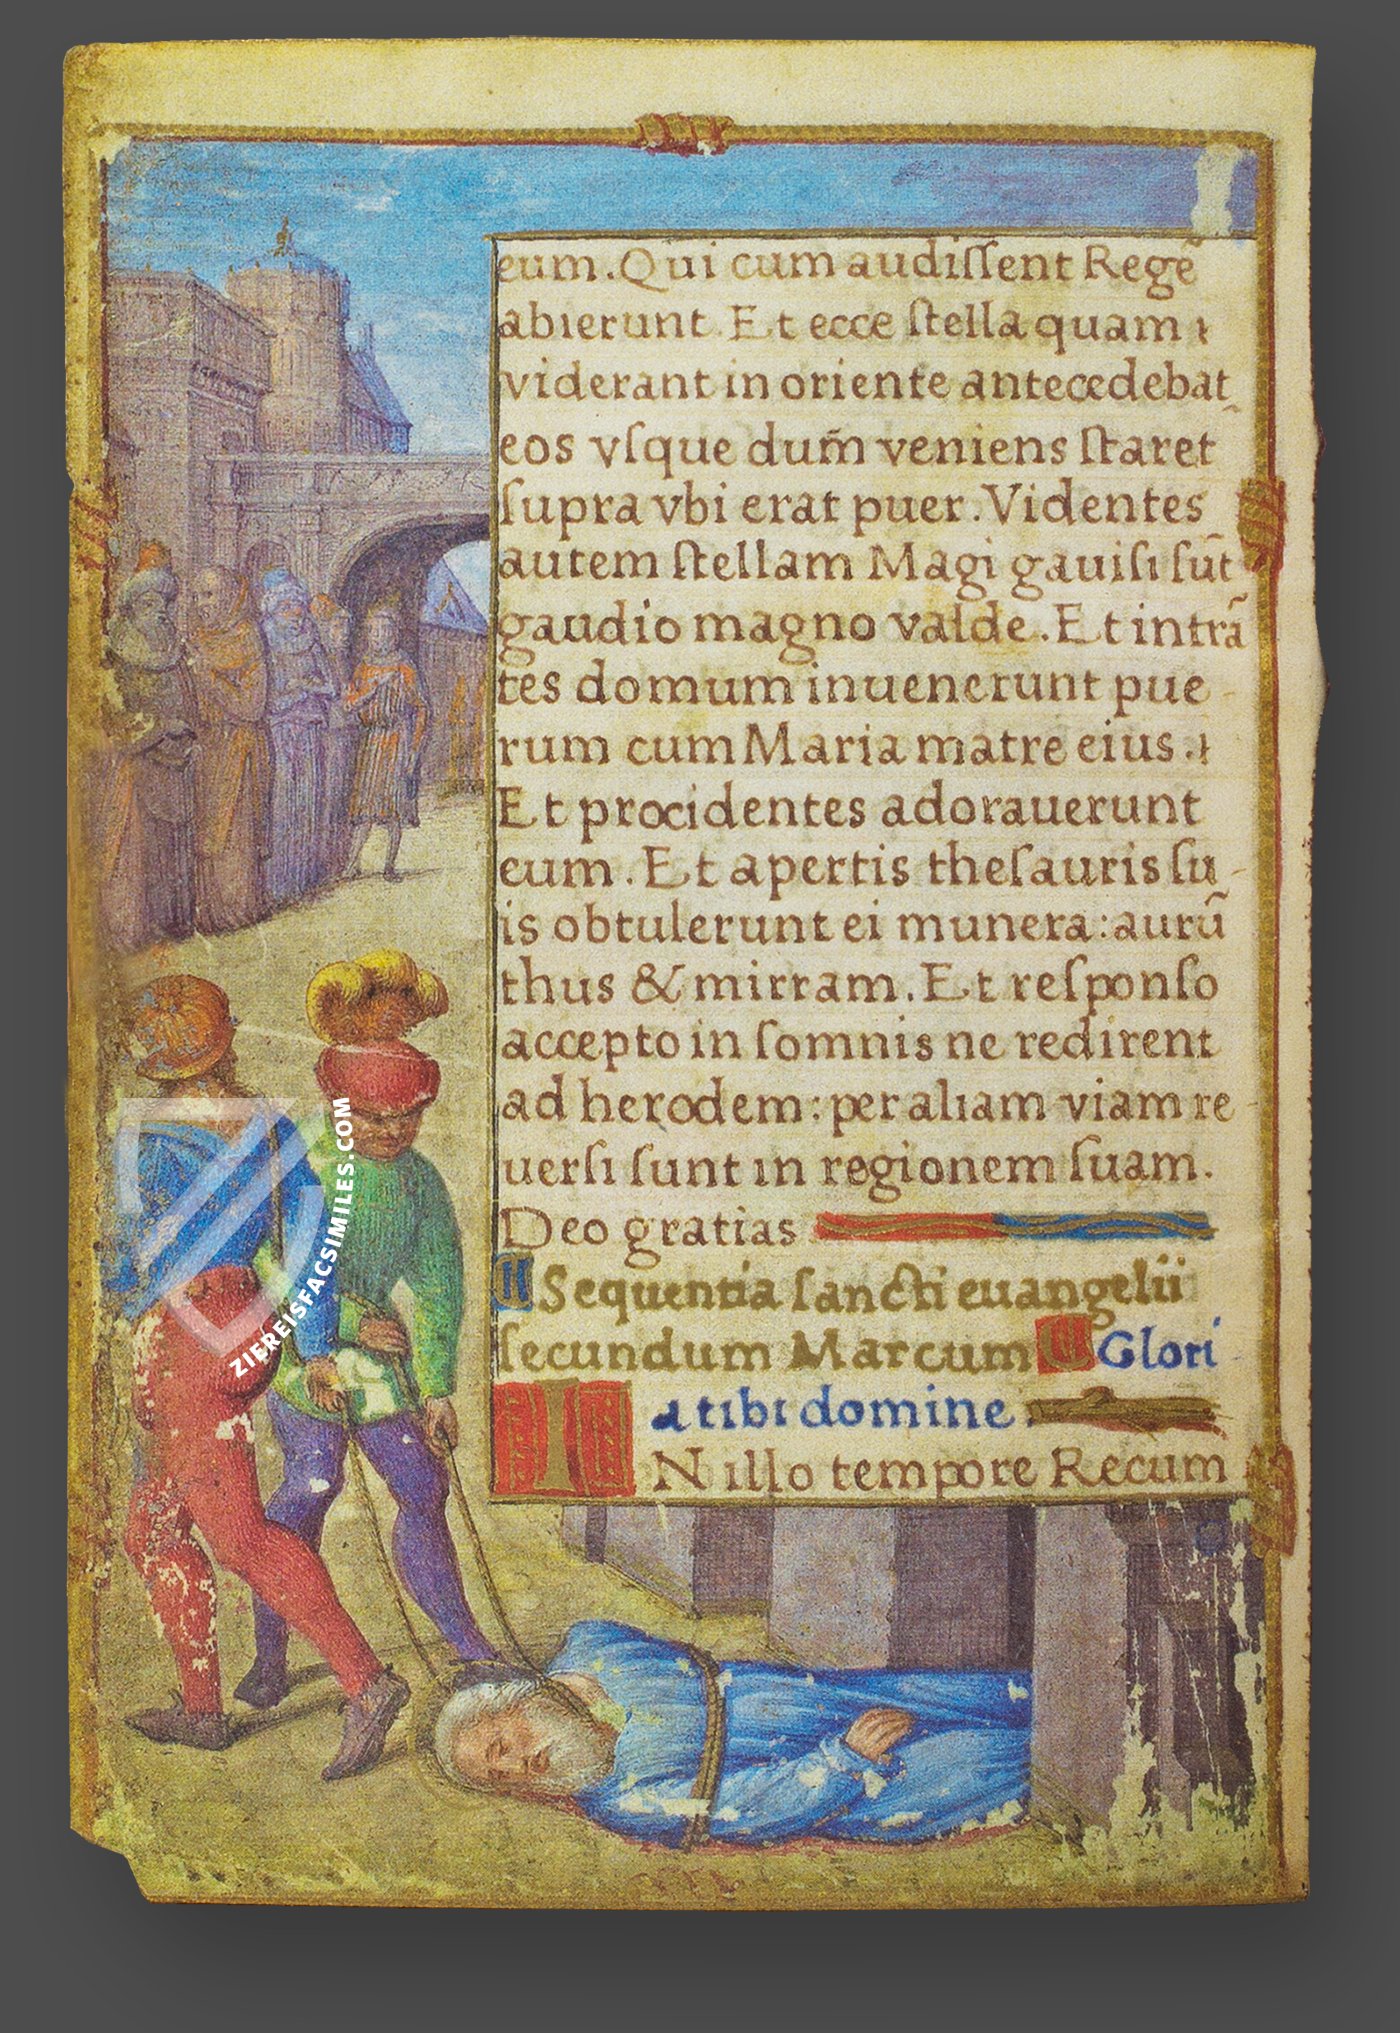 eum. Qui cum audiſſent Regē
abierunt. Et ecce ſtella quam
viderant in oriente antecedebat
eos vſque dum̄ veniens ſtaret
ſupra vbi erat puer. Videntes
autem ſtellam Magi gauiſi ſūt
gaudio magno valde. Et intrā
tes domum inuenerunt pue-
rum cum Maria matre eius.
Et procidentes adorauerunt
eum. Et apertis theſauris ſu-
is obtulerunt ei munera: aurū
thus & mirram. Et reſponſo
accepto in ſomnis ne redirent
ad herodem: per aliam viam re-
uerſi ſunt in regionem ſuam.
Deo gratias
Sequentia ſancti euangelii
ſecundum Marcum Glori-
a tibi domine.
IN illo tempore Recum
ZIEREISFACSIMILES.COM